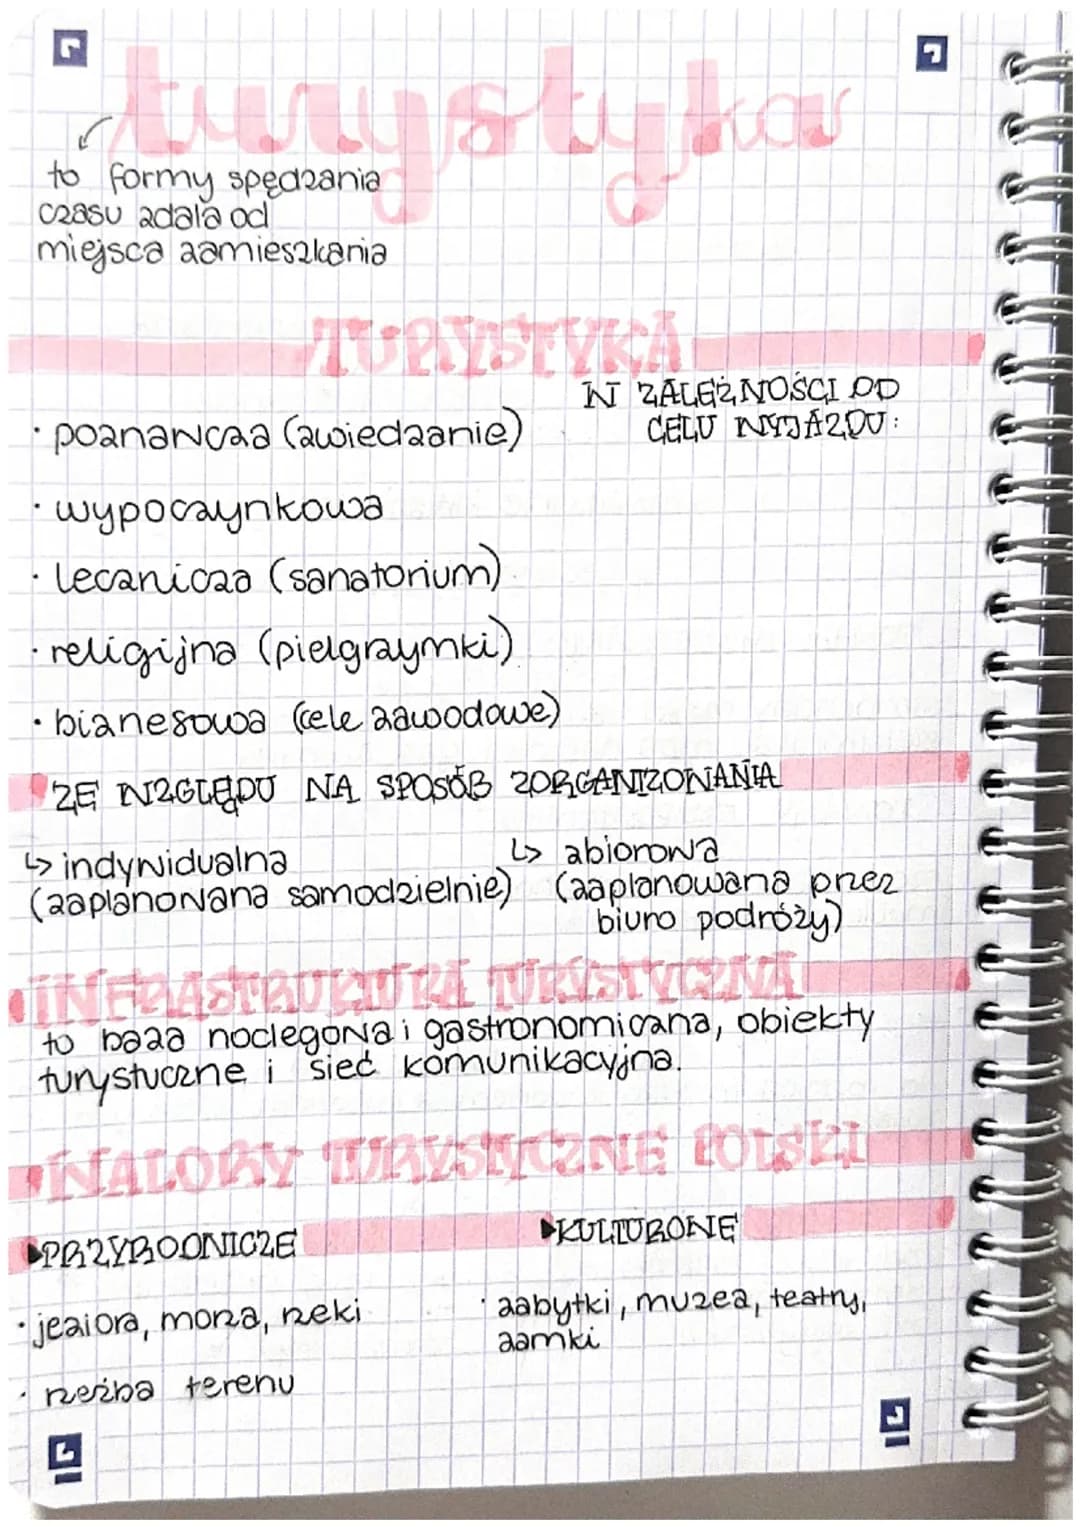 turystyka
to formy spędzania
czasu z dala od
miejsca zamieszkania
TURYSTYKA
W ZALEŻNOŚCI OD
CELU WYJAZDU:
· poznawcza (zwiedzanie)
· wypoczynkowa
· lecznicza (sanatorium)
· religijna (pielgrzymki)
· biznesowa (cele zawodowe)
ZE WZGLĘDU NA SPOSÓB ZORGANIZOWANIA
↳ indywidualna
(zaplanowana samodzielnie)
↳ zbiorowa
(zaplanowana przez
biuro podróży)
INFRASTRUKTURA TURYSTYCZNA
to baza noclegowa i gastronomiczna, obiekty
turystyczne i sieć komunikacyjna.
WALORY TURYSTYCZNE POLSKI
▶PRZYRODNICZE
· jeziora, morza, rzeki
· rzeźba terenu
▶KULTUROWE
· zabytki, muzea, teatry,
zamki